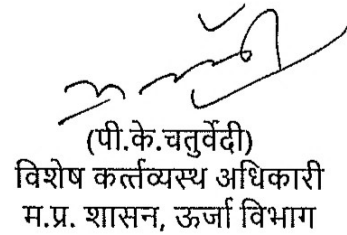 (पी.के.चतुर्वेदी)
विशेष कर्त्तव्यस्थ अधिकारी
म.प्र. शासन, ऊर्जा विभाग